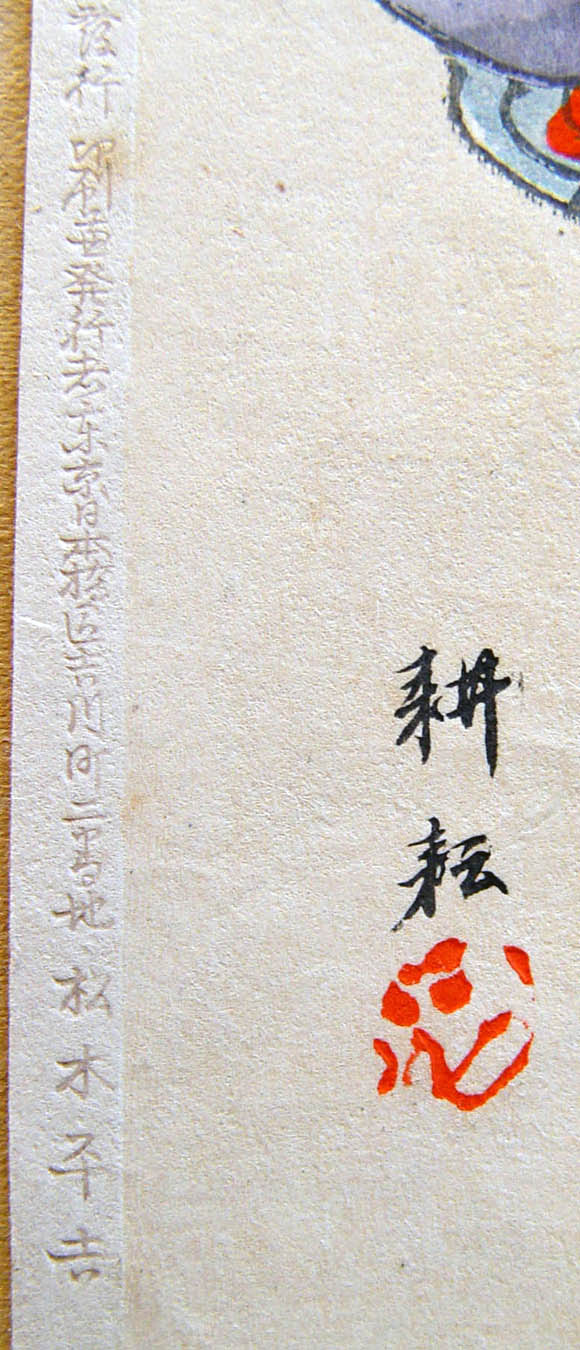 耕耘
發行 印刷発行者東京日本橋区吉川町二番地 松木平吉